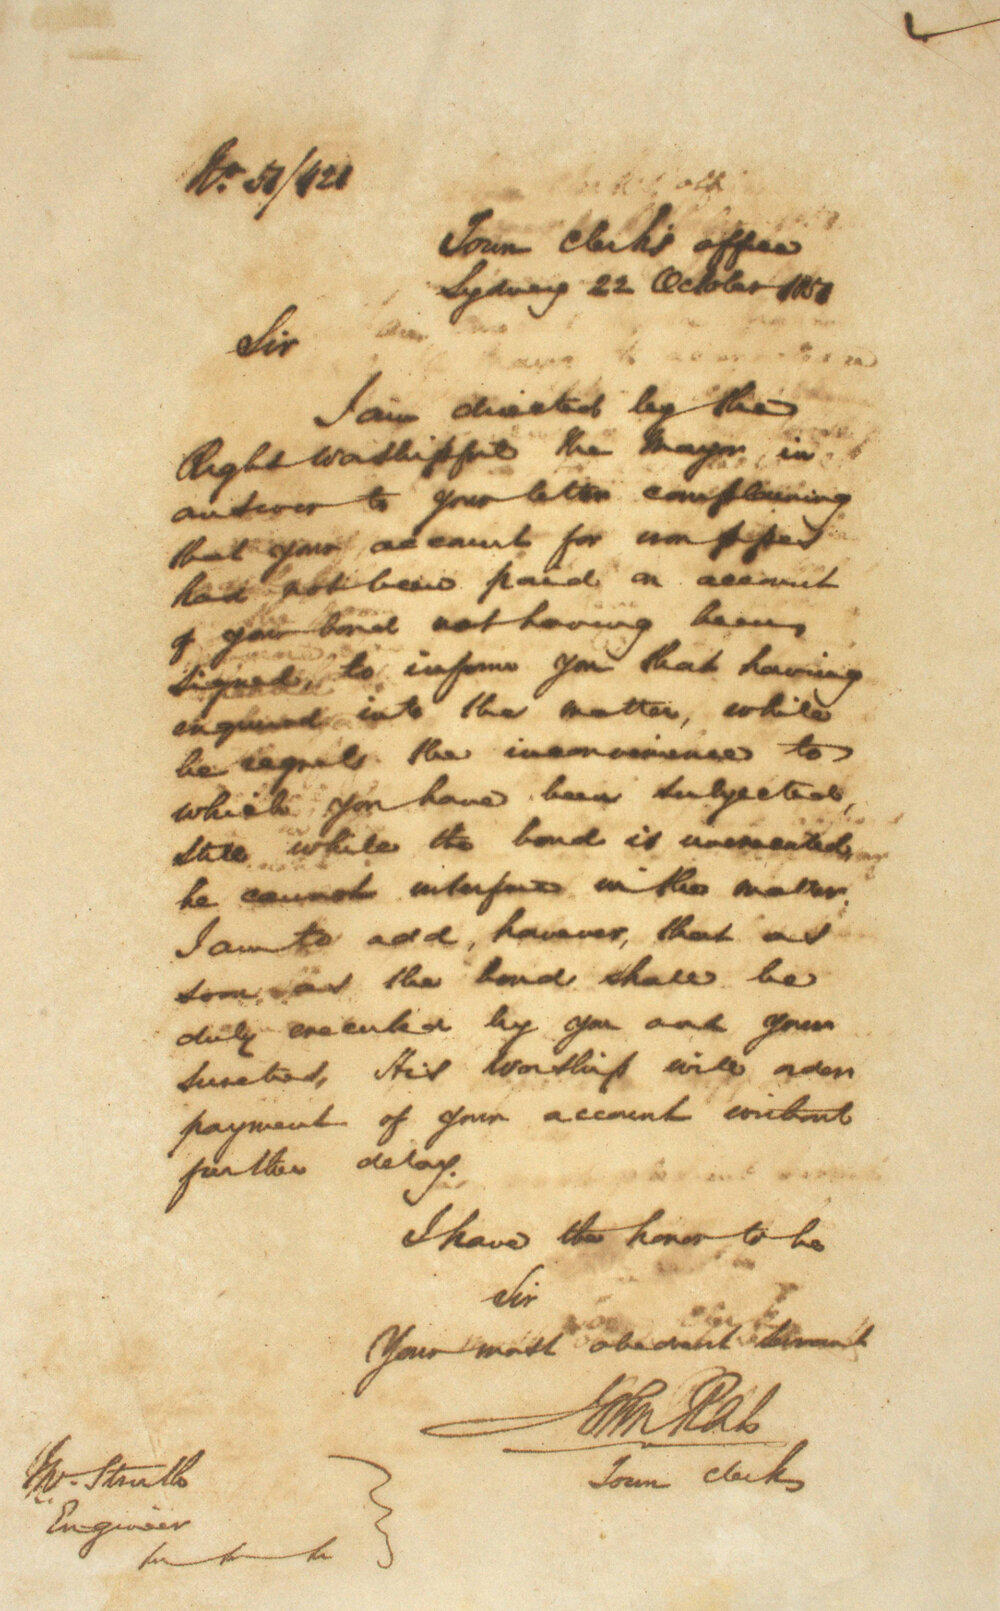 No. 51/421
Town Clerk's Office
Sydney 22 October 1851
Sir
I am directed by the
Right Worshipful the Mayor, in
answer to your letter complaining
that your account for
had not been paid on account
of your bond not having been
signed, to inform you that having
enquired into the matter, while
he regrets the inconvenience to
which you have been subjected,
still while the bond is unexecuted,
he cannot interfere in the matter.
I am to add, however, that as
soon as the bond shall be
duly executed by you and your
sureties, His Worship will order
payment of your account without
further delay.
I have the honor to be
Sir
Your most obedient servant
John Rae
Town Clerk
Mr. Struth
Engineer